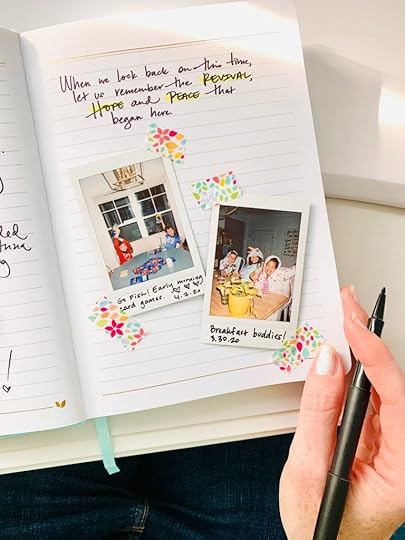 When we look back on this time,
let us remember the REVIVAL,
HOPE and PEACE that
began here.
Go Fish! Early morning
card games.
4.2.20
Breakfast buddies!
3.30.20